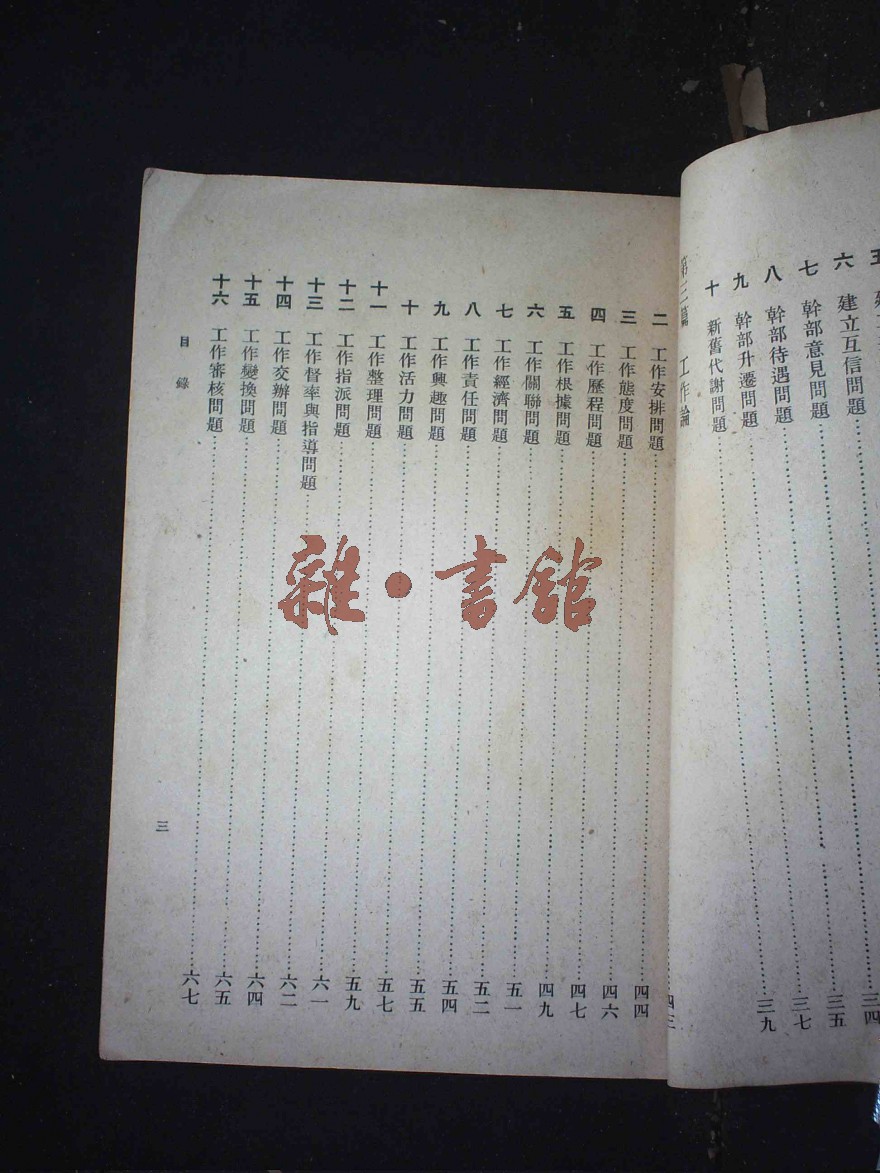 五
六 建立互信問題……三四
七 幹部意見問題……三五
八 幹部待遇問題……三七
九 幹部升遷問題……三九
十 新舊代謝問題……
第三篇 工作論
四三
二 工作安排問題……四四
三 工作態度問題……四六
四 工作歷程問題……四七
五 工作根據問題……四九
六 工作關聯問題……五一
七 工作經濟問題……五二
八 工作責任問題……五四
九 工作興趣問題……五五
十 工作活力問題……五七
十一 工作整理問題……五九
十二 工作指派問題……六一
十三 工作督率與指導問題……六二
十四 工作交辦問題……六四
十五 工作變換問題……六五
十六 工作審核問題……六七
目錄
三
雜·書館